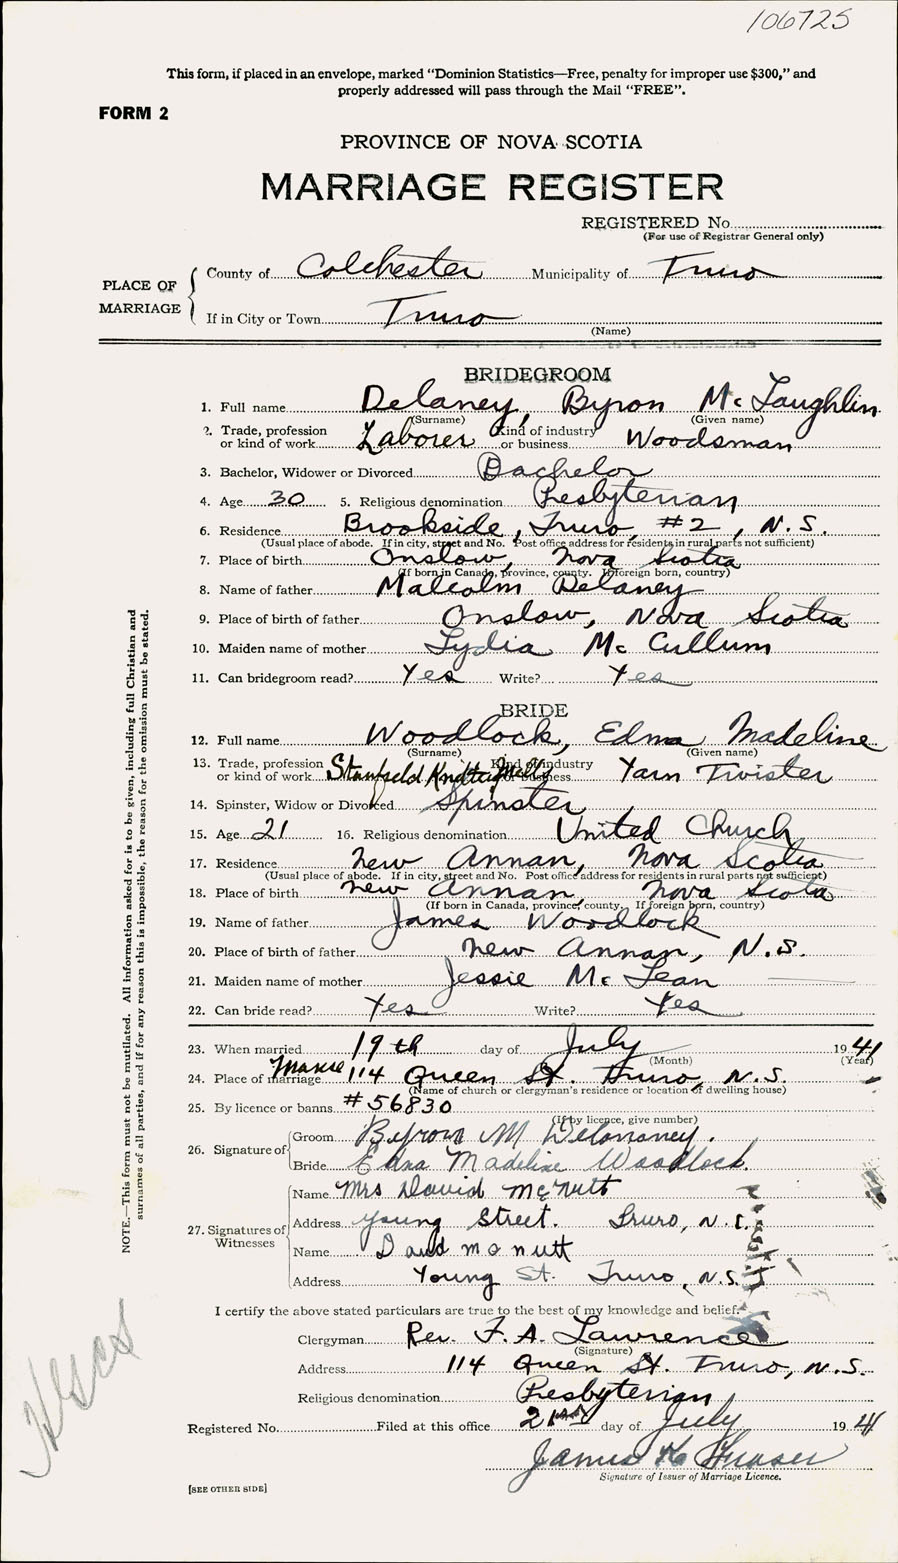 106725
This form, if placed in an envelope, marked "Dominion Statistics—Free, penalty for improper use $300," and
properly addressed will pass through the Mail "FREE".
FORM 2
PROVINCE OF NOVA SCOTIA
MARRIAGE REGISTER
REGISTERED No.
(For use of Registrar General only)
PLACE OF MARRIAGE
County of Colchester Municipality of Truro
If in City or Town Truro
(Name)
BRIDEGROOM
1. Full name Delaney, Byron McLaughlin
(Surname) (Given name)
2. Trade, profession or kind of work Laborer Kind of industry or business Woodsman
3. Bachelor, Widower or Divorced Bachelor
4. Age 30 5. Religious denomination Presbyterian
6. Residence Brookside, Truro, #2, N.S.
(Usual place of abode. If in city, street and No. Post office address for residents in rural parts not sufficient)
7. Place of birth Onslow, Nova Scotia
(If born in Canada, province, county. If foreign born, country)
8. Name of father Malcolm Delaney
9. Place of birth of father Onslow, Nova Scotia
10. Maiden name of mother Lydia McCullum
11. Can bridegroom read? Yes Write? Yes
BRIDE
12. Full name Woodlock, Edna Madeline
(Surname) (Given name)
13. Trade, profession or kind of work Stanfield Kind of industry or business Yarn Twister
14. Spinster, Widow or Divorced Spinster
15. Age 21 16. Religious denomination United Church
17. Residence New Annan, Nova Scotia
(Usual place of abode. If in city, street and No. Post office address for residents in rural parts not sufficient)
18. Place of birth New Annan, Nova Scotia
(If born in Canada, province, county. If foreign born, country)
19. Name of father James Woodlock
20. Place of birth of father New Annan, N.S.
21. Maiden name of mother Jessie McLean
22. Can bride read? Yes Write? Yes
23. When married 19th day of July 1941
(Month) (Year)
Manse
24. Place of marriage 114 Queen St. Truro, N.S.
(Name of church or clergyman's residence or location of dwelling house)
25. By licence or banns #56830
(If by licence, give number)
26. Signature of
Groom Byron M Delaney.
Bride Edna Madeline Woodlock.
27. Signatures of Witnesses
Name Mrs David McNutt
Address Young Street. Truro, N.S.
Name David McNutt
Address Young St. Truro, N.S.
I certify the above stated particulars are true to the best of my knowledge and belief.
Clergyman Rev. F. A. Lawrence
(Signature)
Address 114 Queen St. Truro, N.S.
Religious denomination Presbyterian
Registered No. Filed at this office 21st day of July 1941
James K Fraser
Signature of Issuer of Marriage Licence.
[SEE OTHER SIDE]
NOTE.—This form must not be mutilated. All information asked for is to be given, including full Christian and
surnames of all parties, and if for any reason this is impossible, the reason for the omission must be stated.